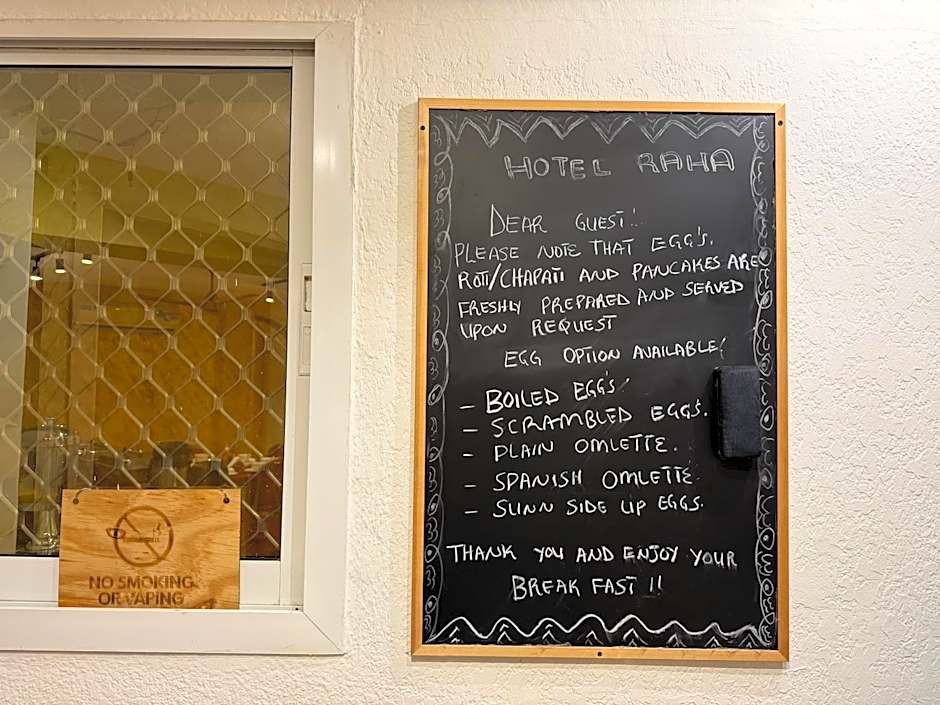 HOTEL RAHA
DEAR GUEST!
PLEASE NOTE THAT EGG'S.
ROTI/CHAPATI AND PANCAKES ARE
FRESHLY PREPARED AND SERVED
UPON REQUEST
EGG OPTION AVAILABLE!
- BOILED EGG'S!
- SCRAMBLED EGGS.
- PLAIN OMLETTE.
- SPANISH OMLETTE.
- SUNN SIDE UP EGGS.
THANK YOU AND ENJOY YOUR
BREAK FAST !!
NO SMOKING
OR VAPING